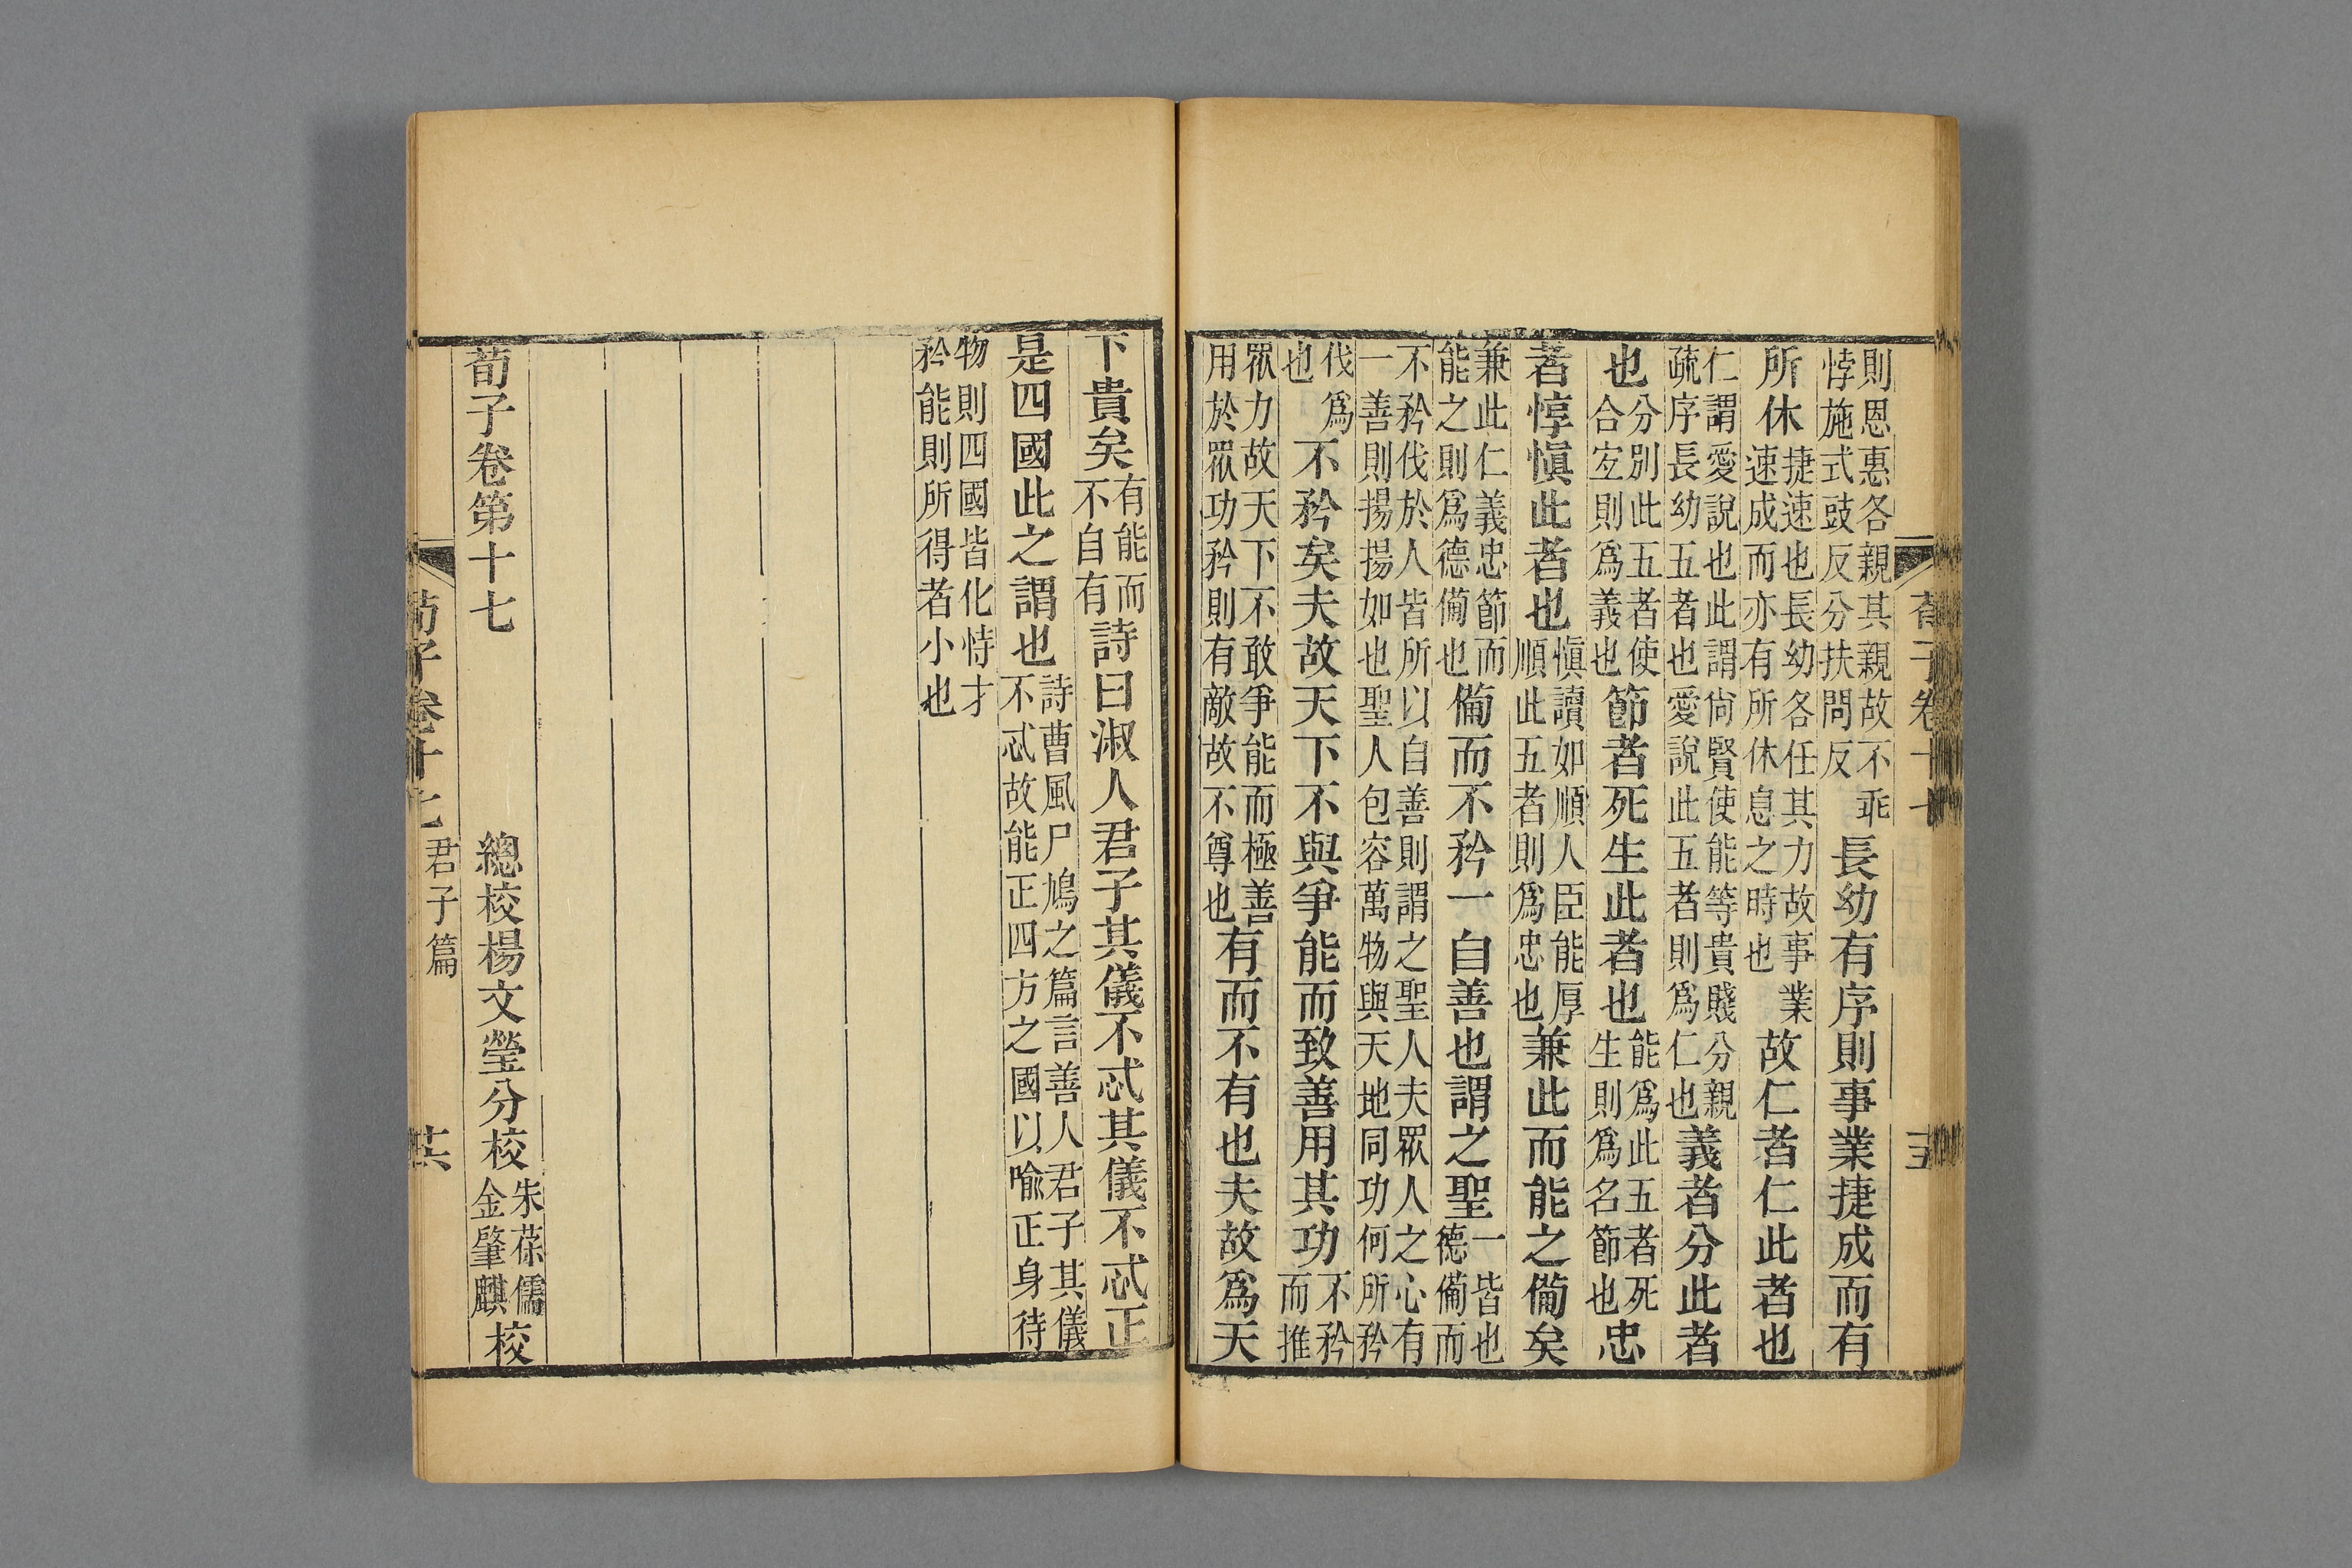 則恩惠各親其親故不乖
悖施式豉反分扶問反
長幼有序則事業捷成而有
所休
捷速也長幼各任其力故事業
速成而亦有所休息之時也
故仁者仁此者也
仁謂愛說也此謂尙賢使能等貴賤分親
疏序長幼五者也愛說此五者則爲仁也
義者分此者
也
分別此五者使
合宐則爲義也
節者死生此者也
能爲此五者死
生則爲名節也
忠
者惇愼此者也
愼讀如順人臣能厚
順此五者則爲忠也
兼此而能之備矣
兼此仁義忠節而
能之則爲德備也
備而不矜一自善也謂之聖
一皆也
德備而
不矜伐於人皆所以自善則謂之聖人夫眾人之心有
一善則揚揚如也聖人包容萬物與天地同功何所矜
伐爲
也
不矜矣夫故天下不與爭能而致善用其功
不矜
而推
眾力故天下不敢爭能而極善
用於眾功矜則有敵故不尊也
有而不有也夫故爲天
下貴矣
有能而
不自有
詩曰淑人君子其儀不忒其儀不忒正
是四國此之謂也
詩曹風尸鳩之篇言善人君子其儀
不忒故能正四方之國以喻正身待
物則四國皆化恃才
矜能則所得者小也
荀子卷第十七
總校楊文瑩分校
朱葆儒
金肇麒
校
荀子卷十七
君子篇